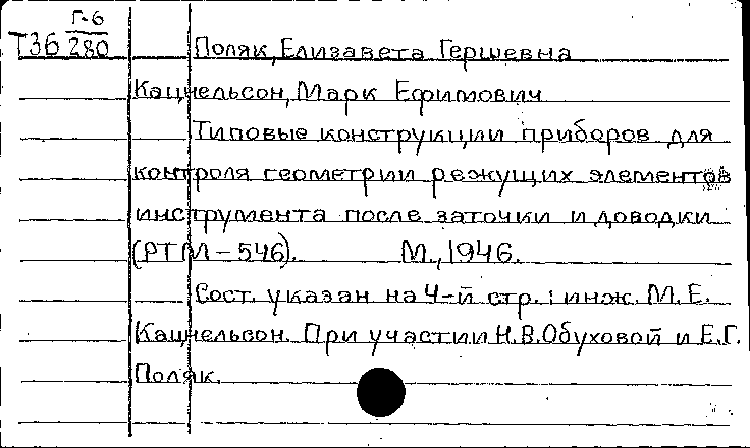 Г-6
Т36 280
Поляк, Елизавета Гершевна
Кацнельсон, Марк Ефимович
Типовые конструкции приборов для
контроля геометрии режущих элементов
инструмента после заточки и доводки
(РТМ-546). М., 1946.
Сост. указан на 4-й стр.: инж. М.Е.
Кацнельсон. При участии Н.В.Обуховой и Е.Г.
Поляк.